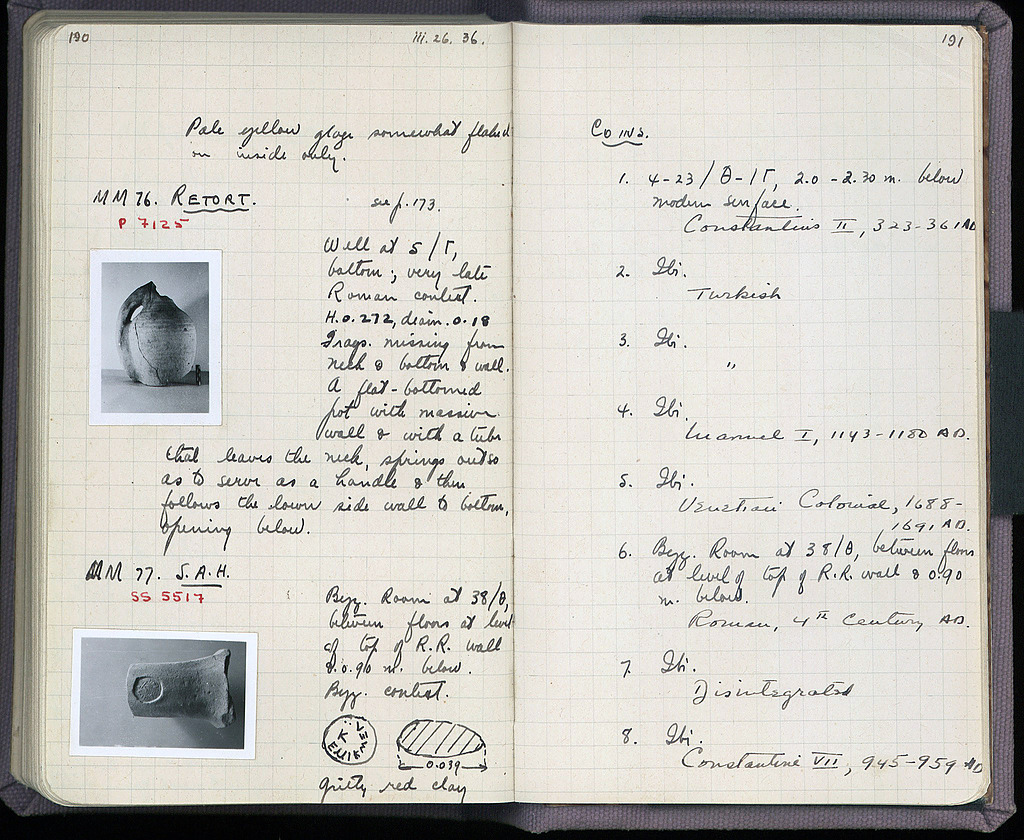 190
III. 26. 36.
Pale yellow glaze somewhat flaked
on inside only.
MM 76. RETORT.
see p. 173.
P 7125
Well at 5/Γ,
bottom; very late
Roman context.
H. 0.272, diam. 0.18
Frags. missing from
neck & bottom & wall.
A flat-bottomed
pot with massive
wall & with a tube
that leaves the neck, springs out so
as to serve as a handle & then
follows the down side wall to bottom,
opening below.
MM 77. S.A.H.
SS 5517
Byz. Room at 38/Θ,
between floors at level
of top of R.R. wall
& 0.90 m. below.
Byz. context.
0.039
gritty red clay
191
COINS.
1. 4-23/Θ-ΙΓ, 2.0-2.30 m. below
modern surface.
Constantius II, 323-361 AD
2. Ibi.
Turkish
3. Ibi.
"
4. Ibi.
Manuel I, 1143-1180 AD.
5. Ibi.
Venetian Colonial, 1688-
1691 AD.
6. Byz. Room at 38/Θ, between floors
at level of top of R.R. wall & 0.90
m. below.
Roman, 4th Century AD.
7. Ibi.
Disintegrated
8. Ibi.
Constantine VII, 945-959 AD